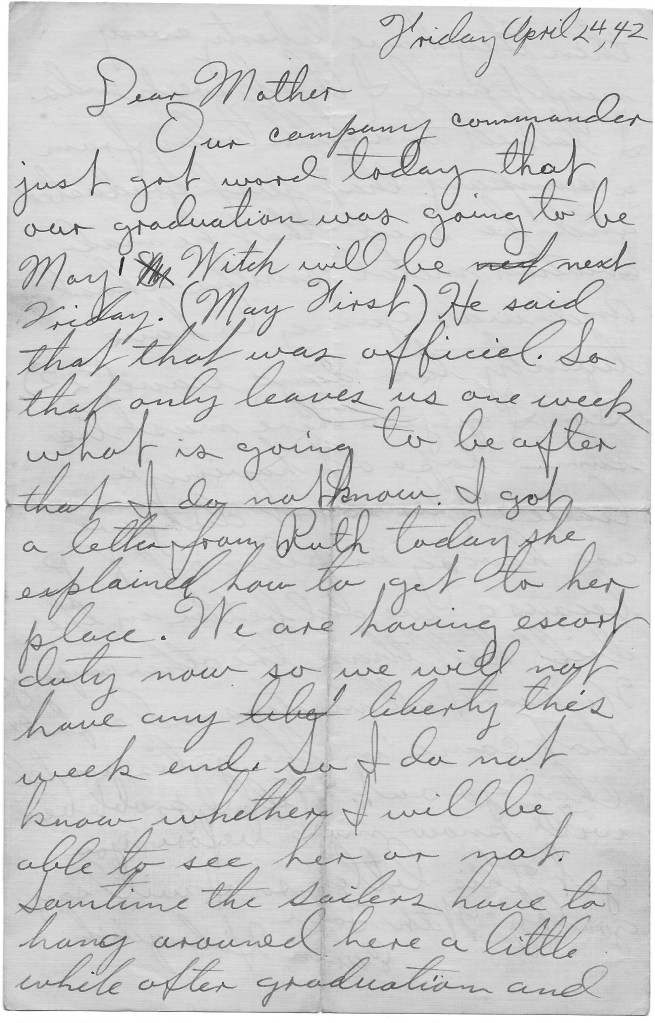 Friday April 24, 42
Dear Mother
Our company commander
just got word today that
our graduation was going to be
May 1 Witch will be next
Friday. (May First) He said
that that was officiel. So
that only leaves us one week
what is going to be after
that I do not know. I got
a letter from Ruth today she
explained how to get to her
place. We are having escort
duty now so we will not
have any libe liberty this
week end. So I do not
know whether I will be
able to see her or not.
Somtime the sailers have to
hang arouned here a little
while after graduation and